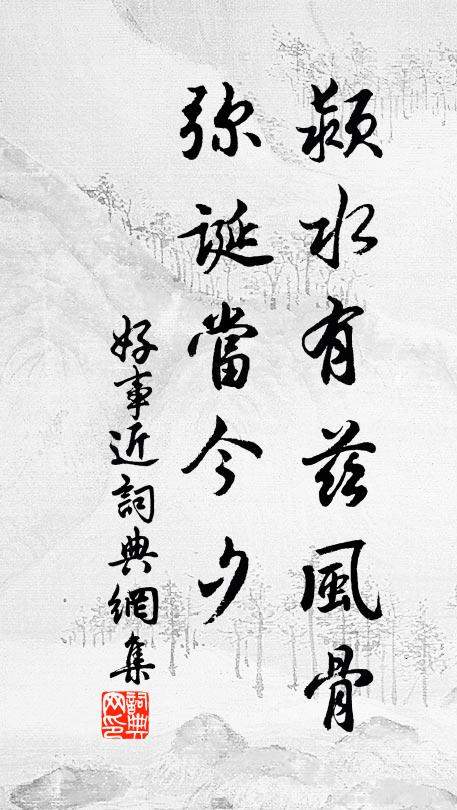 潁水有茲風骨
弥誕當今夕
好事近詞典網集
詞典
网印